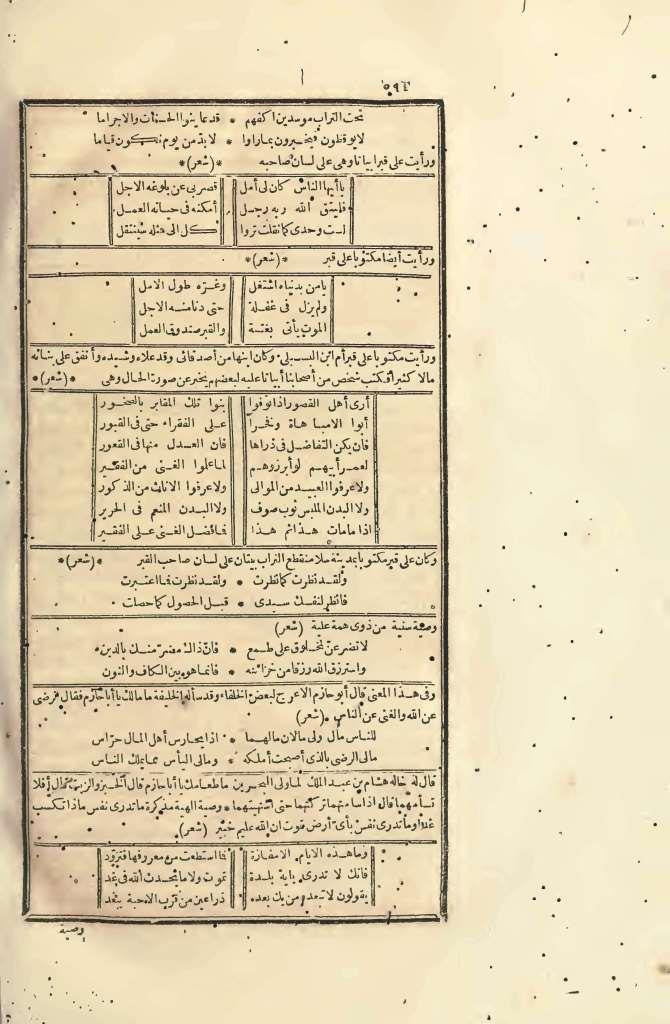 ٥٩٢
تحت التراب موسدين اكفهم * قد عاينوا الحسنات والاجراما
لا يوقظون فيخبرون بما راوا * لا بد من يوم نكون قياما
ورأيت على قبر أبياتا وهى على لسان صاحبه *(شعر)*
يا أيها الناس كان لى أمل قصر بى عن بلوغه الاجل
فليتق الله ربه رجل أمكنه فى حياته العمل
لست وحدى كما نقلت تروا كل الى مثله سينتقل
ورأيت أيضا مكتوبا على قبر *(شعر)*
يا من بدنياه اشتغل وغره طول الامل
ولم يزل فى غفلة حتى دنا منه الاجل
الموت يأتى بغتة والقبر صندوق العمل
ورأيت مكتوبا على قبر أم ابن البسيلى وكان ابنها من أصدقائى وقد علاه وشيده وأنفق على بنائه
مالا كثيرا فكتب شخص من أصحابنا أبياتا عليه لبعضهم يخبر عن صورة الحال وهى *(شعر)*
أرى أهل القصور اذا توفوا بنوا تلك المقابر بالصخور
أبوا الا مباهاة وفخرا على الفقراء حتى فى القبور
فان يكن التفاضل فى ذراها فان العدل منها فى القعور
لعمر أبيهم لو أبرزوهم لما علموا الغنى من الفقير
ولا عرفوا العبيد من الموالى ولا عرفوا الاناث من الذكور
ولا البدن الملبس ثوب صوف ولا البدن المنعم فى الحرير
اذا ما مات هذا ثم هذا فما فضل الغنى على الفقير
وكان على قبر مكتوبا بمدينة ملا منقطع التراب بيتان على لسان صاحب القبر *(شعر)*
ولقد نظرت كما نظرت * ولقد نظرت فما اعتبرت
فانظر لنفسك سيدى * قبل الحصول كما حصلت
وصية سنية من ذوى همة علية (شعر)
لا تضرعن لمخلوق على طمع * فان ذاك مضر منك بالدين
واسترزق الله رزقا من خزائنه * فانما هو بين الكاف والنون
وفى هذا المعنى قال أبو حازم الاعرج لبعض الخلفاء وقد سأله الخليفة ما مالك يا أبا حازم فقال الرضى
عن الله والغنى عن الناس (شعر)
للناس مال ولى مالان مالهما * اذا يحارس أهل المال حراس
مالى الرضى بالذى أصبحت أملكه * ومالى اليأس مما يملك الناس
قال له خاله هشام بن عبد الملك لما ولى البحرين ما طعامك يا أبا حازم قال الخبز والزيت قال أفلا
تسأمهما قال اذا سأمتهما تركتهما حتى أشتهيهما * وصية الهية مذكرة ما تدرى نفس ماذا تكسب
غدا وما تدرى نفس بأى أرض تموت ان الله عليم خبير (شعر)
وما هذه الايام الا معارة فما استطعت من معروفها فتزود
فانك لا تدرى باية بلدة تموت ولا ما يحدث الله فى غد
يقولون لا تبعد ومن يك بعده ذراعين من قرب الاحبة يبعد
وصية